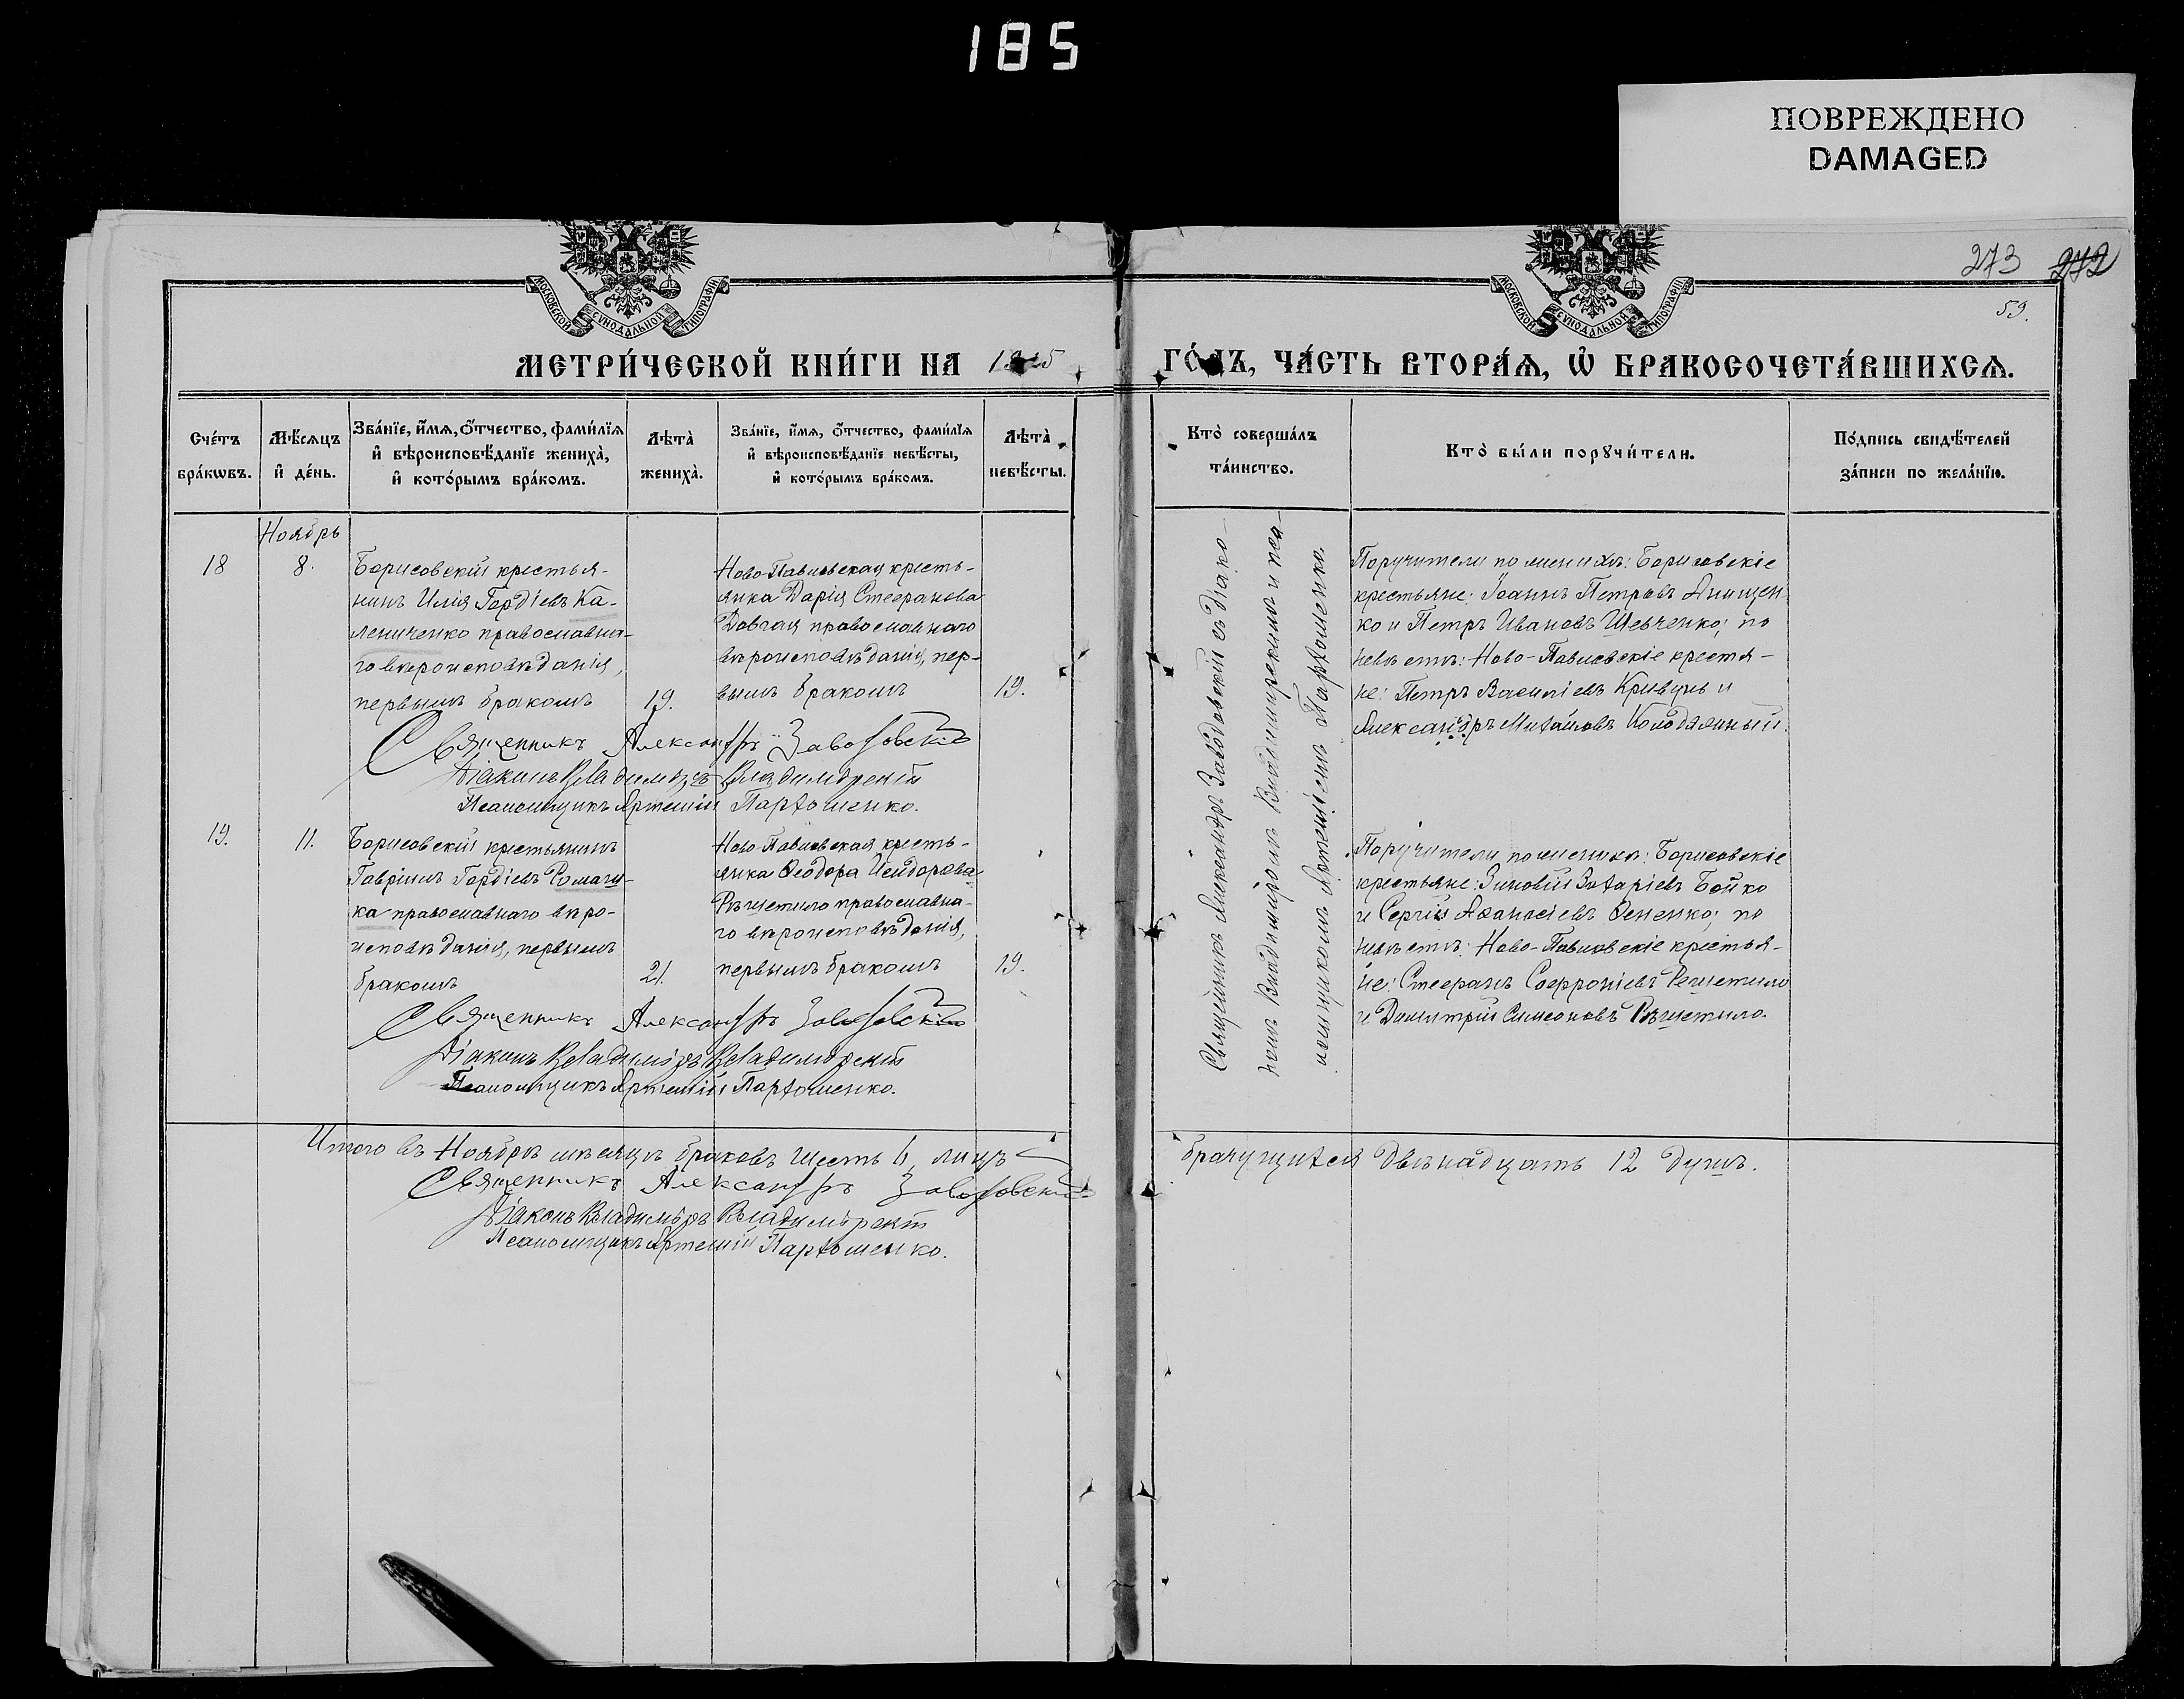 185
ПОВРЕЖДЕНО
DAMAGED
273 272
59.
МОСКОВСКОЙ СѴНОДАЛЬНОЙ ТИПОГРАФІИ
МОСКОВСКОЙ СѴНОДАЛЬНОЙ ТИПОГРАФІИ
МЕТРИ́ЧЕСКОЙ КНИ́ГИ НА
ГО́ДЪ, ЧА́СТЬ ВТОРА́Ѧ, Ѽ БРАКОСОЧЕТА́ВШИХСѦ.
Сче́тъ бра́кѡвъ.
Мѣ́сяцъ и҆ де́нь.
Зва́нїе, и҆́мѧ, ѻ҆́тчество, фами́лїѧ
и҆ вѣроисповѣ́данїе жениха̀,
и҆ кото́рымъ бра́комъ.
Лѣ́та̀ жениха̀.
Зва́нїе, и҆́мѧ, ѻ҆́тчество, фами́лїѧ
и҆ вѣроисповѣ́данїе невѣ́сты,
и҆ кото́рымъ бра́комъ.
Лѣ́та̀ невѣ́сты.
Кто̀ соверша́лъ та́инство.
Кто̀ бы́ли порꙋчи́тели.
По́дпись свидѣ́телей
за́писи по жела́нїю.
Ноябрь
18
8.
Борисовскій крестья-
нинъ Илія Гордіевъ Ка-
лениченко православна-
го вѣроисповѣданія,
первымъ бракомъ
19.
Ново-Павловская кресть-
янка Дарія Стефанова
Довгая православнаго
вѣроисповѣданія, пер-
вымъ бракомъ
19.
Священникъ Александръ Заводовскій съ діако-
номъ Владиміромъ Владимірскимъ и пса-
ломщикомъ Артеміемъ Пархоменко.
Поручители по женихѣ: Борисовскіе
крестьяне: Іоаннъ Петровъ Анищен-
ко и Петръ Ивановъ Шевченко; по
невѣстѣ: Ново-Павловскіе крестя-
не: Петръ Василіевъ Кривунь и
Александръ Михаиловъ Колодяжный.
Священникъ Александръ Заводовскій
Діаконъ Владиміръ Владимірскій
Псаломщикъ Артемій Пархоменко.
19.
11.
Борисовскій крестьянинъ
Гавріилъ Гордіевъ Ромащ-
ка православнаго вѣро-
исповѣданія, первымъ
бракомъ
21.
Ново-Павловская кресть-
янка Ѳеодора Исидорова
Рѣшетило православна-
го вѣроисповѣданія,
первымъ бракомъ
19.
Поручители по женихѣ: Борисовскіе
крестьяне: Зиновій Захаріевъ Бойко
и Сергій Аѳанасіевъ Ѳененко; по
невѣстѣ: Ново-Павловскіе крестья-
не: Стефанъ Софроніевъ Решетило
и Димитрій Симеоновъ Рѣшетило.
Священникъ Александръ Заводовскій
Діаконъ Владиміръ Владимірскій
Псаломщикъ Артемій Пархоменко.
Итого въ Ноябрѣ мѣсяцѣ браковъ шесть 6, лицъ
брачущихся двѣнадцать 12 душъ.
Священникъ Александръ Заводовскій
Діаконъ Владиміръ Владимірскій
Псаломщикъ Артемій Пархоменко.